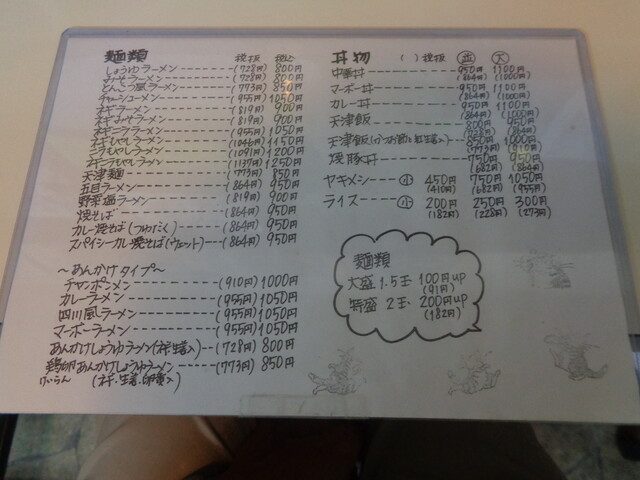 麺類 税抜 税込
しょうゆラーメン (728円) 800円
みそラーメン (728円) 800円
とんこつ風ラーメン (773円) 850円
チャーシューメン (955円) 1050円
ネギラーメン (819円) 900円
ネギみそラーメン (819円) 900円
ネギニララーメン (955円) 1050円
ネギもやしラーメン (1046円) 1150円
ニラもやしラーメン (1091円) 1200円
ネギニラもやしラーメン (1137円) 1250円
天津麺 (773円) 850円
五目ラーメン (864円) 950円
野菜湯ラーメン (819円) 900円
焼そば (864円) 950円
カレー焼そば (つゆだく) (864円) 950円
スパイシーカレー焼そば (ウェット) (864円) 950円
〜あんかけタイプ〜
チャンポンメン (910円) 1000円
カレーラーメン (955円) 1050円
四川風ラーメン (955円) 1050円
マーボーラーメン (955円) 1050円
あんかけしょうゆラーメン (ネギ・生姜入) (728円) 800円
鶏卵あんかけしょうゆラーメン (773円) 850円
けいらん (ネギ・生姜・卵黄入)
丼物 ( )税抜 並 大
中華丼 950円 1100円
(864円) (1000円)
マーボー丼 950円 1100円
(864円) (1000円)
カレー丼 950円 1100円
(864円) (1000円)
天津飯 800円 950円
(728円) (864円)
天津飯 (かつお節と紅生姜入) 850円 1000円
(773円) (910円)
焼豚丼 750円 950円
(682円) (864円)
ヤキメシ 小 450円 750円 1050円
(410円) (682円) (955円)
ライス 小 200円 250円 300円
(182円) (228円) (273円)
麺類
大盛 1.5玉・100円up
(91円)
特盛 2玉・200円up
(182円)